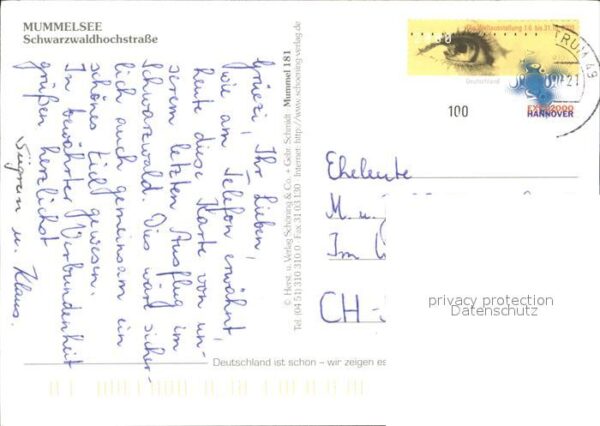 MUMMELSEE
Schwarzwaldhochstraße
Grüezi, Ihr Lieben,
wie am Telefon erwähnt,
heute diese Karte von un-
serem letzten Ausflug im
Schwarzwald. Dies wär sicher-
lich auch gemeinsam ein
schönes Ziel gewesen.
In bewährter Verbundenheit
grüßen herzlichst
Sigrun u. Klaus.
© Herst. u. Verlag Schöning & Co. + Gebr. Schmidt Mummel 181
Tel. (04 51) 310 310 0 · Fax 31 03 130 · Internet: http://www.schoening-verlag.de
Deutschland ist schön – wir zeigen es
Deutschland
100
EXPO2000
HANNOVER
TRUM 49
21
Eheleute
M. u.
Im
CH-
privacy protection
Datenschutz